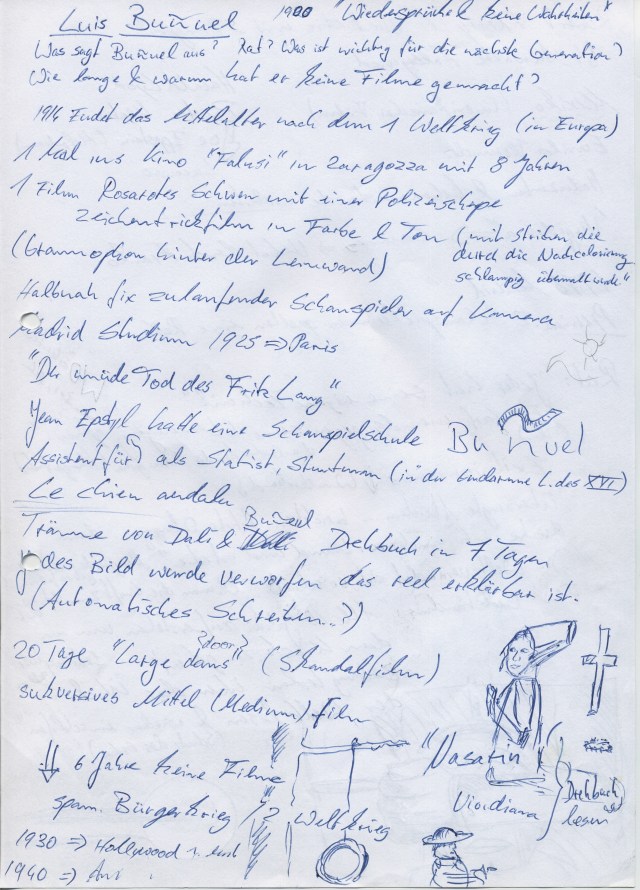 Luis Buñuel 1900 "Wiedersprüche & keine Wahrheiten"
Was sagt Buñuel aus? Rat? Was ist wichtig für die nächste Generation?
Wie lange & warum hat er keine Filme gemacht?
1914 Endet das Mittelalter nach dem 1 Weltkrieg (in Europa)
1 Mal ins Kino "Falusi" in Zaragozza mit 8 Jahren
1 Film Rosarotes Schwein mit einer Polizeischepe
Zeichentrickfilm in Farbe & Ton (mit strichen die
durch die Nachcolorierung
schlampig übermalt wurde"
(Grammophon hinter der Leinwand)
Halbnah fix zulaufender Schauspieler auf Kamera
Madrid Studium 1925 => Paris
"Der müde Tod des Fritz Lang"
Jean Epstyl hatte eine Schauspielschule
Buñuel
Assistent für als Statist, Stuntman (in der L. des XVI)
Le chien andalu
Träume von Dali & Buñuel Drehbuch in 7 Tagen
jedes Bild wurde verworfen das reel erklärbar ist.
(Automatisches Schreiben..?)
20 Tage "Large dams" ?door? (Skandalfilm)
subversives Mittel (Medium) film
6 Jahre keine Filme
"Nasarin"
Viridiana
Drehbuch
lesen
span. Bürgerkrieg / 2 Weltkrieg
1930 => Hollywood
1940 =>